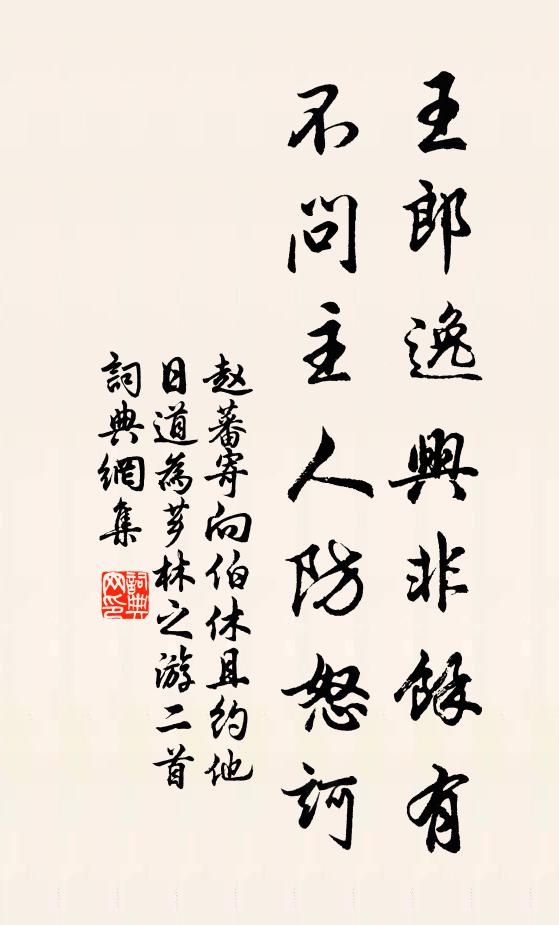 王郎逸興非餘有
不問主人防怒訶
赵蕃寄向伯休且约他
日道為芗林之游二首
詞典網集
詞典網印